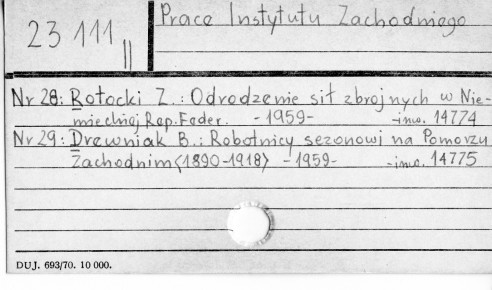 23 111 II
Prace Instytutu Zachodniego
Nr 28: Rotocki Z.: Odrodzenie sił zbrojnych w Nie-
mieckiej Rep. Feder. - 1959 - - inw. 14774
Nr 29: Drewniak B.: Robotnicy sezonowi na Pomorzu
Zachodnim <1890-1918> - 1959 - - inw. 14775
DUJ. 693/70. 10 000.